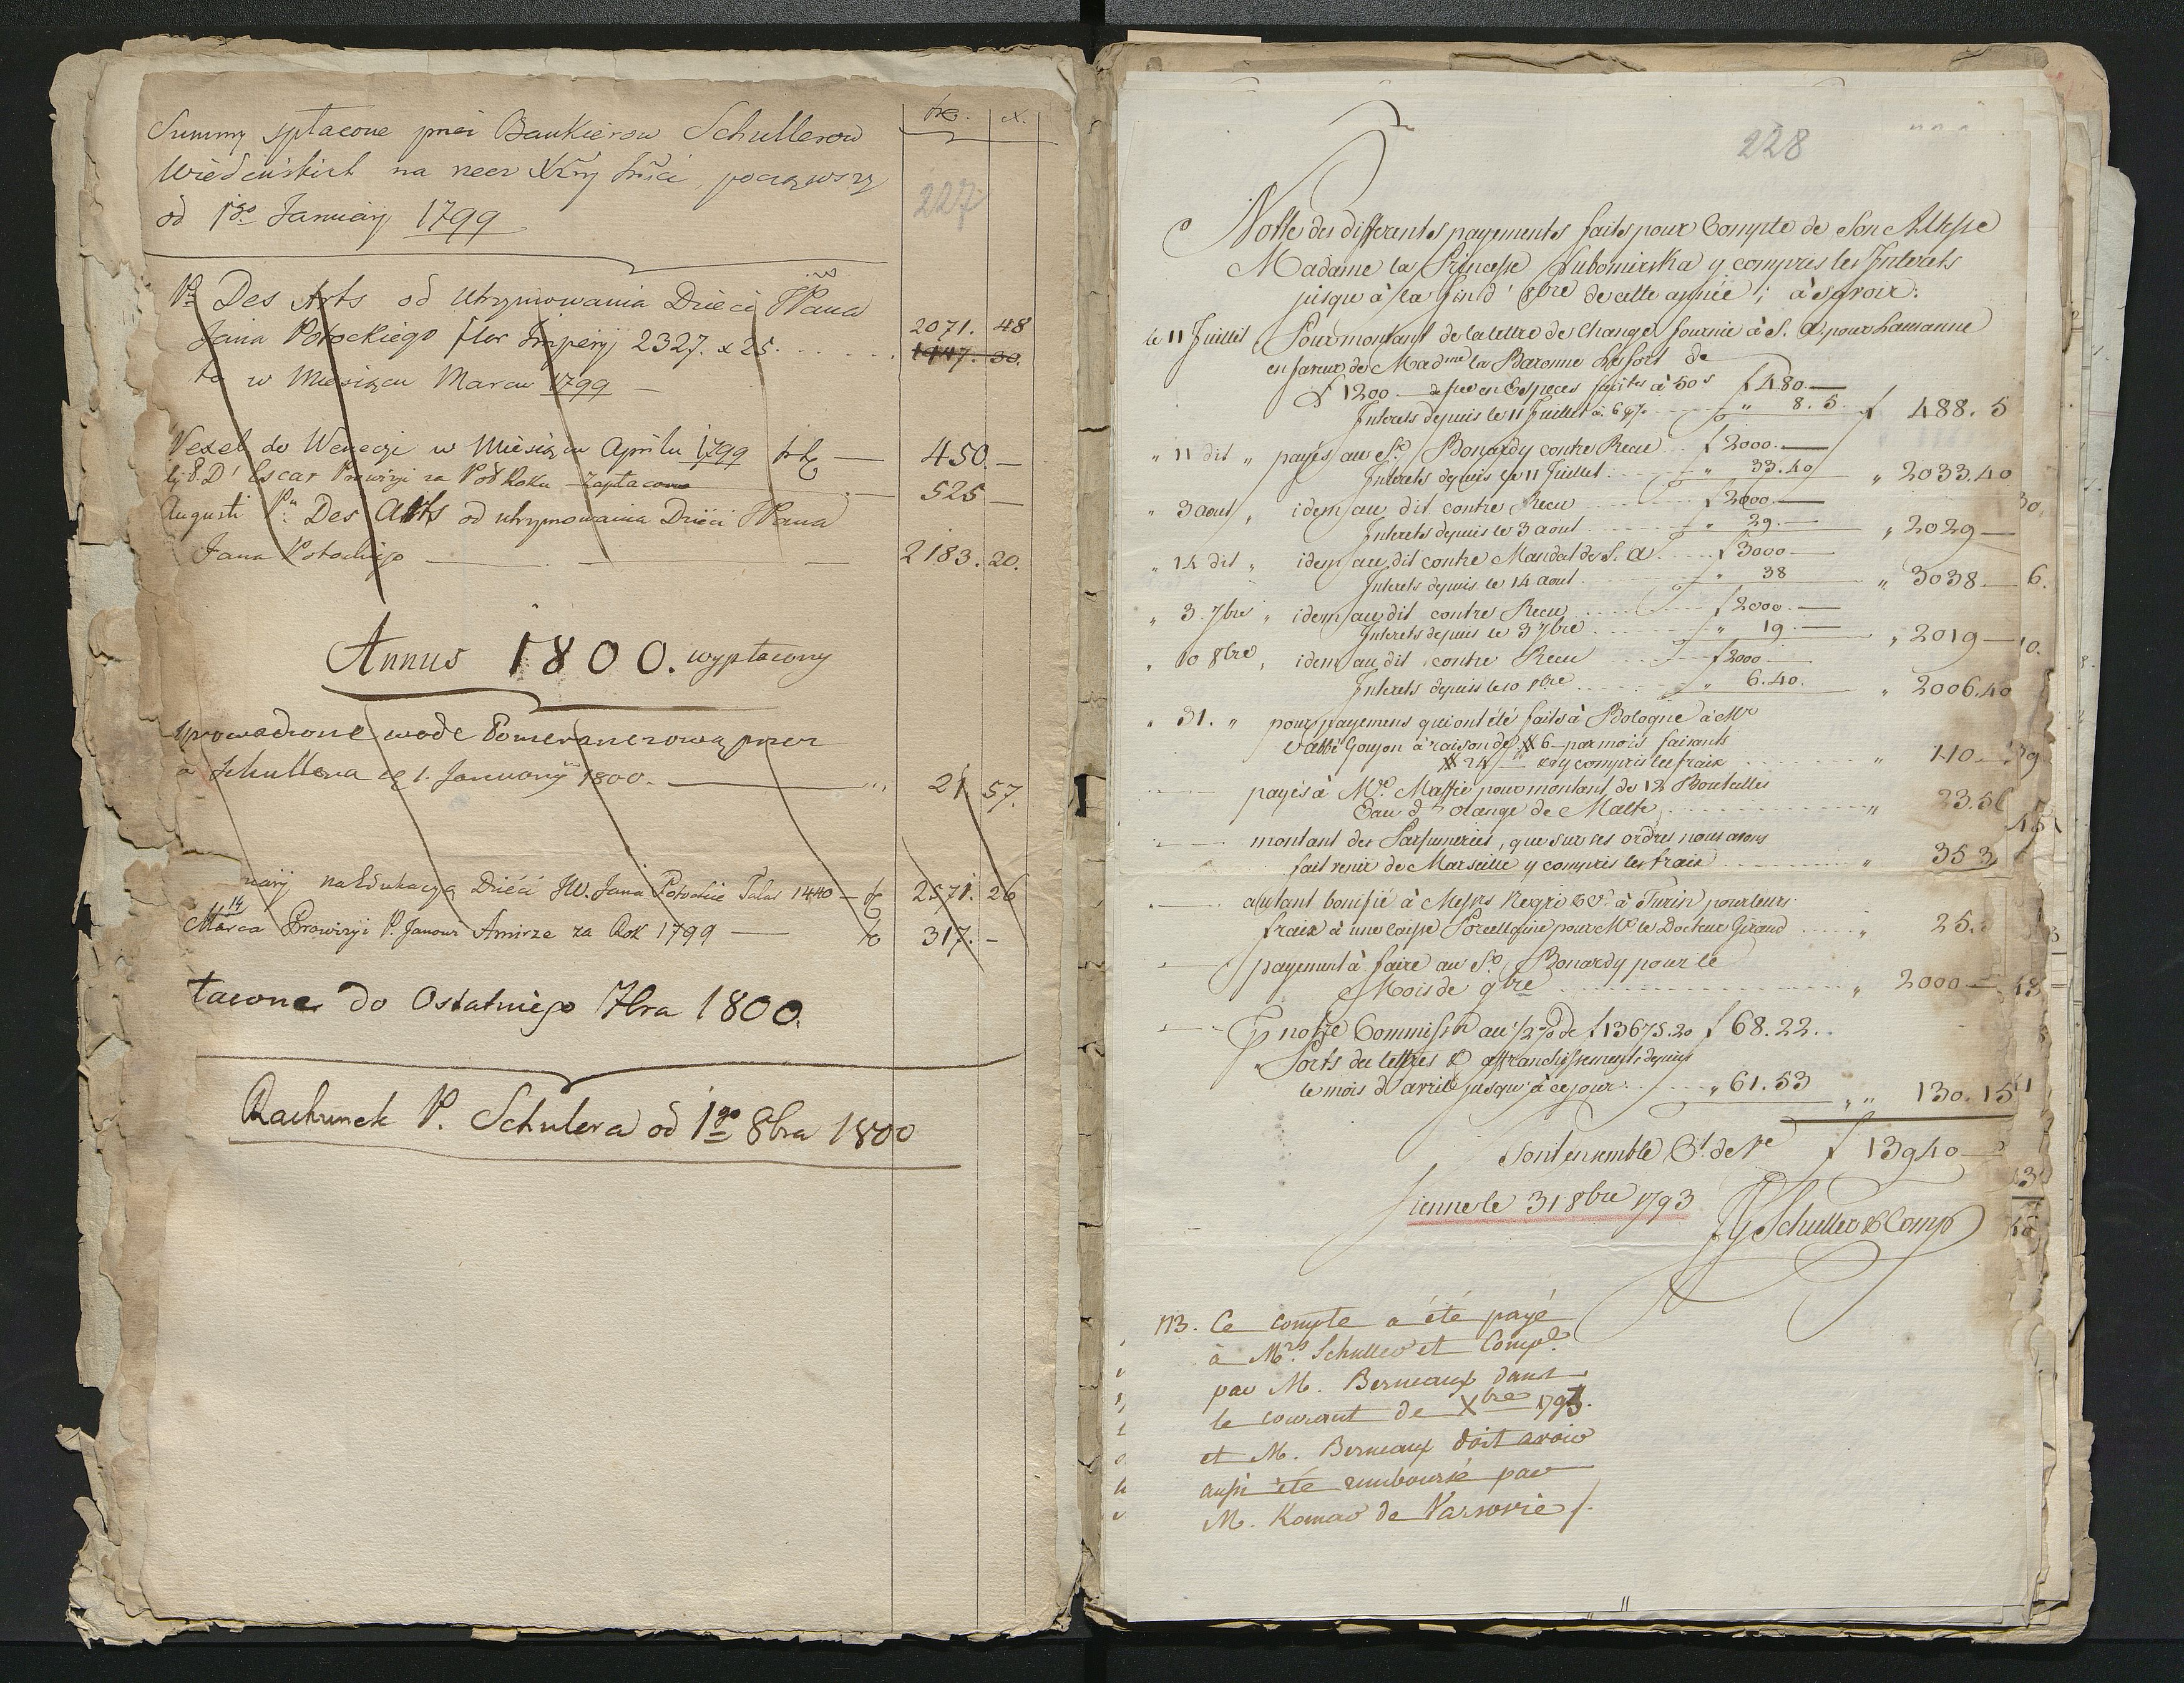 Summy spłacone przez Bankierow Schullerow
Wiedeńskich na rzecz Xżny Jmści, począwszy
od 1go January 1799
227
Pu Des Arts od Utrzymowania Dzieci JWPana
Jana Potockiego flor Imperij 2327. x 25. 2071. 48
to w Miesiącu Marcu 1799 — 1947. 30.
Vexel do Wenecyi w Miesiącu Aprilu 1799 — 450. —
D'Escar Prowizyi za Poł Roku zapłacono — 525 —
Augusti Pu Des Arts od utrzymowania Dzieci JPana
Jana Potockiego — 2183. 20.
Annus 1800. wypłacony
sprowadzone wode Pomeranczową przez
a Schullera 1. January 1800. — 21 57.
nary na Edukacyą Dzieci JW. Jana Potockie Talar 1440 — 2571. 26
14
Marca Prowizyi P. Janowi Amirze za Rok 1799 — 317. -
łacone do Ostatniego 7bra 1800.
Rachunek P. Schulera od 1go 8bra 1800
228
Notte des differents payements faits pour Compte de Son Altesse
Madame la Princesse Lubomirska y compris les Interets
jusqu'à la fin d'8bre de cette année; à savoir:
le 11 Juillet Pour montant de la lettre de Change fournie à S. A. pour Lausanne
en faveur de Madme la Baronne Lefort de
1200 — en Especes à 50s f 480. —
Interets depuis le 11 Juillet à 6% " 8. 5. f 488. 5
" 11 dit " payés au Sr Bonardy contre Recu f 2000. —
Interets depuis le 11 Juillet " 33.40 " 2033.40
" 3 aout " idem au dit contre Recu f 2000. —
Interets depuis le 3 aout " 29. — " 2029 —
" 14 dit " idem au dit contre Mandat de S. A. f 3000 —
Interets depuis le 14 aout " 38 " 3038 —
" 3. 7bre " idem au dit contre Recu f 2000. —
Interets depuis le 3 7bre " 19. — " 2019 —
" 10 8bre " idem au dit contre Recu f 2000 —
Interets depuis le 10 8bre " 6.40. " 2006.40
" 31. " pour payemens qui ont été faits à Bologne à Mr
l'abbé Goujon à raison de # 6 — par mois faisants
# 24 — y compris les frais " 110 —
payés à Mr. Maffei pour montant de 12 Bouteilles
Eau d'orange de Malte " 23.5
montant des Parfumeries, que sur ses ordres nous avons
fait venir de Marseille y compris les frais " 353
autant bonifié à Messrs Negri & C. à Turin pour leurs
frais à une caisse Porcellaine pour Mr le Docteur Giraud " 25.
payement à faire au Sr Bonardy pour le
Mois de 9bre " 2000 —
notre Commission au 1/2 % de f 13675.20 f 68.22.
Ports des lettres & affranchissements depuis
le mois d'avril jusqu'à ce jour " 61.53 " 130.15
Sont ensemble Ct. de Ve f 13940 —
Vienne le 31 8bre 1793
Schuller & Comp
Ce compte a été payé
à Mrs Schuller et Comp.
par M. Berneaux dans
le courant de Xbre 1793.
et M. Berneaux doit avoir
aussi été remboursé par
M. Komar de Varsovie